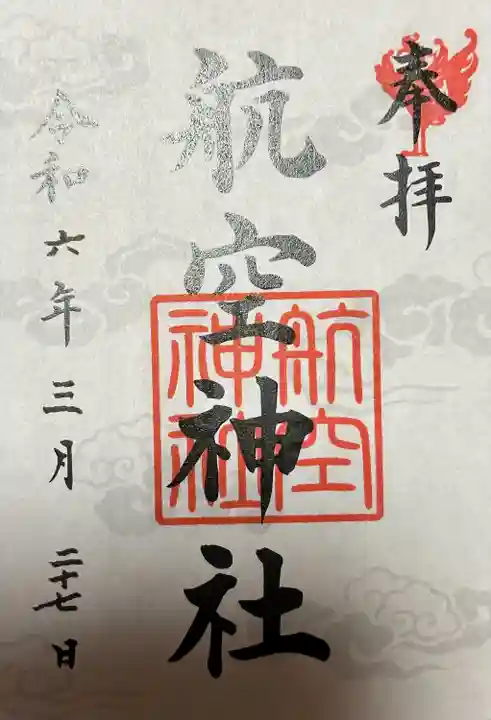 奉拝
航空神社
航空神社
令和六年三月二十七日